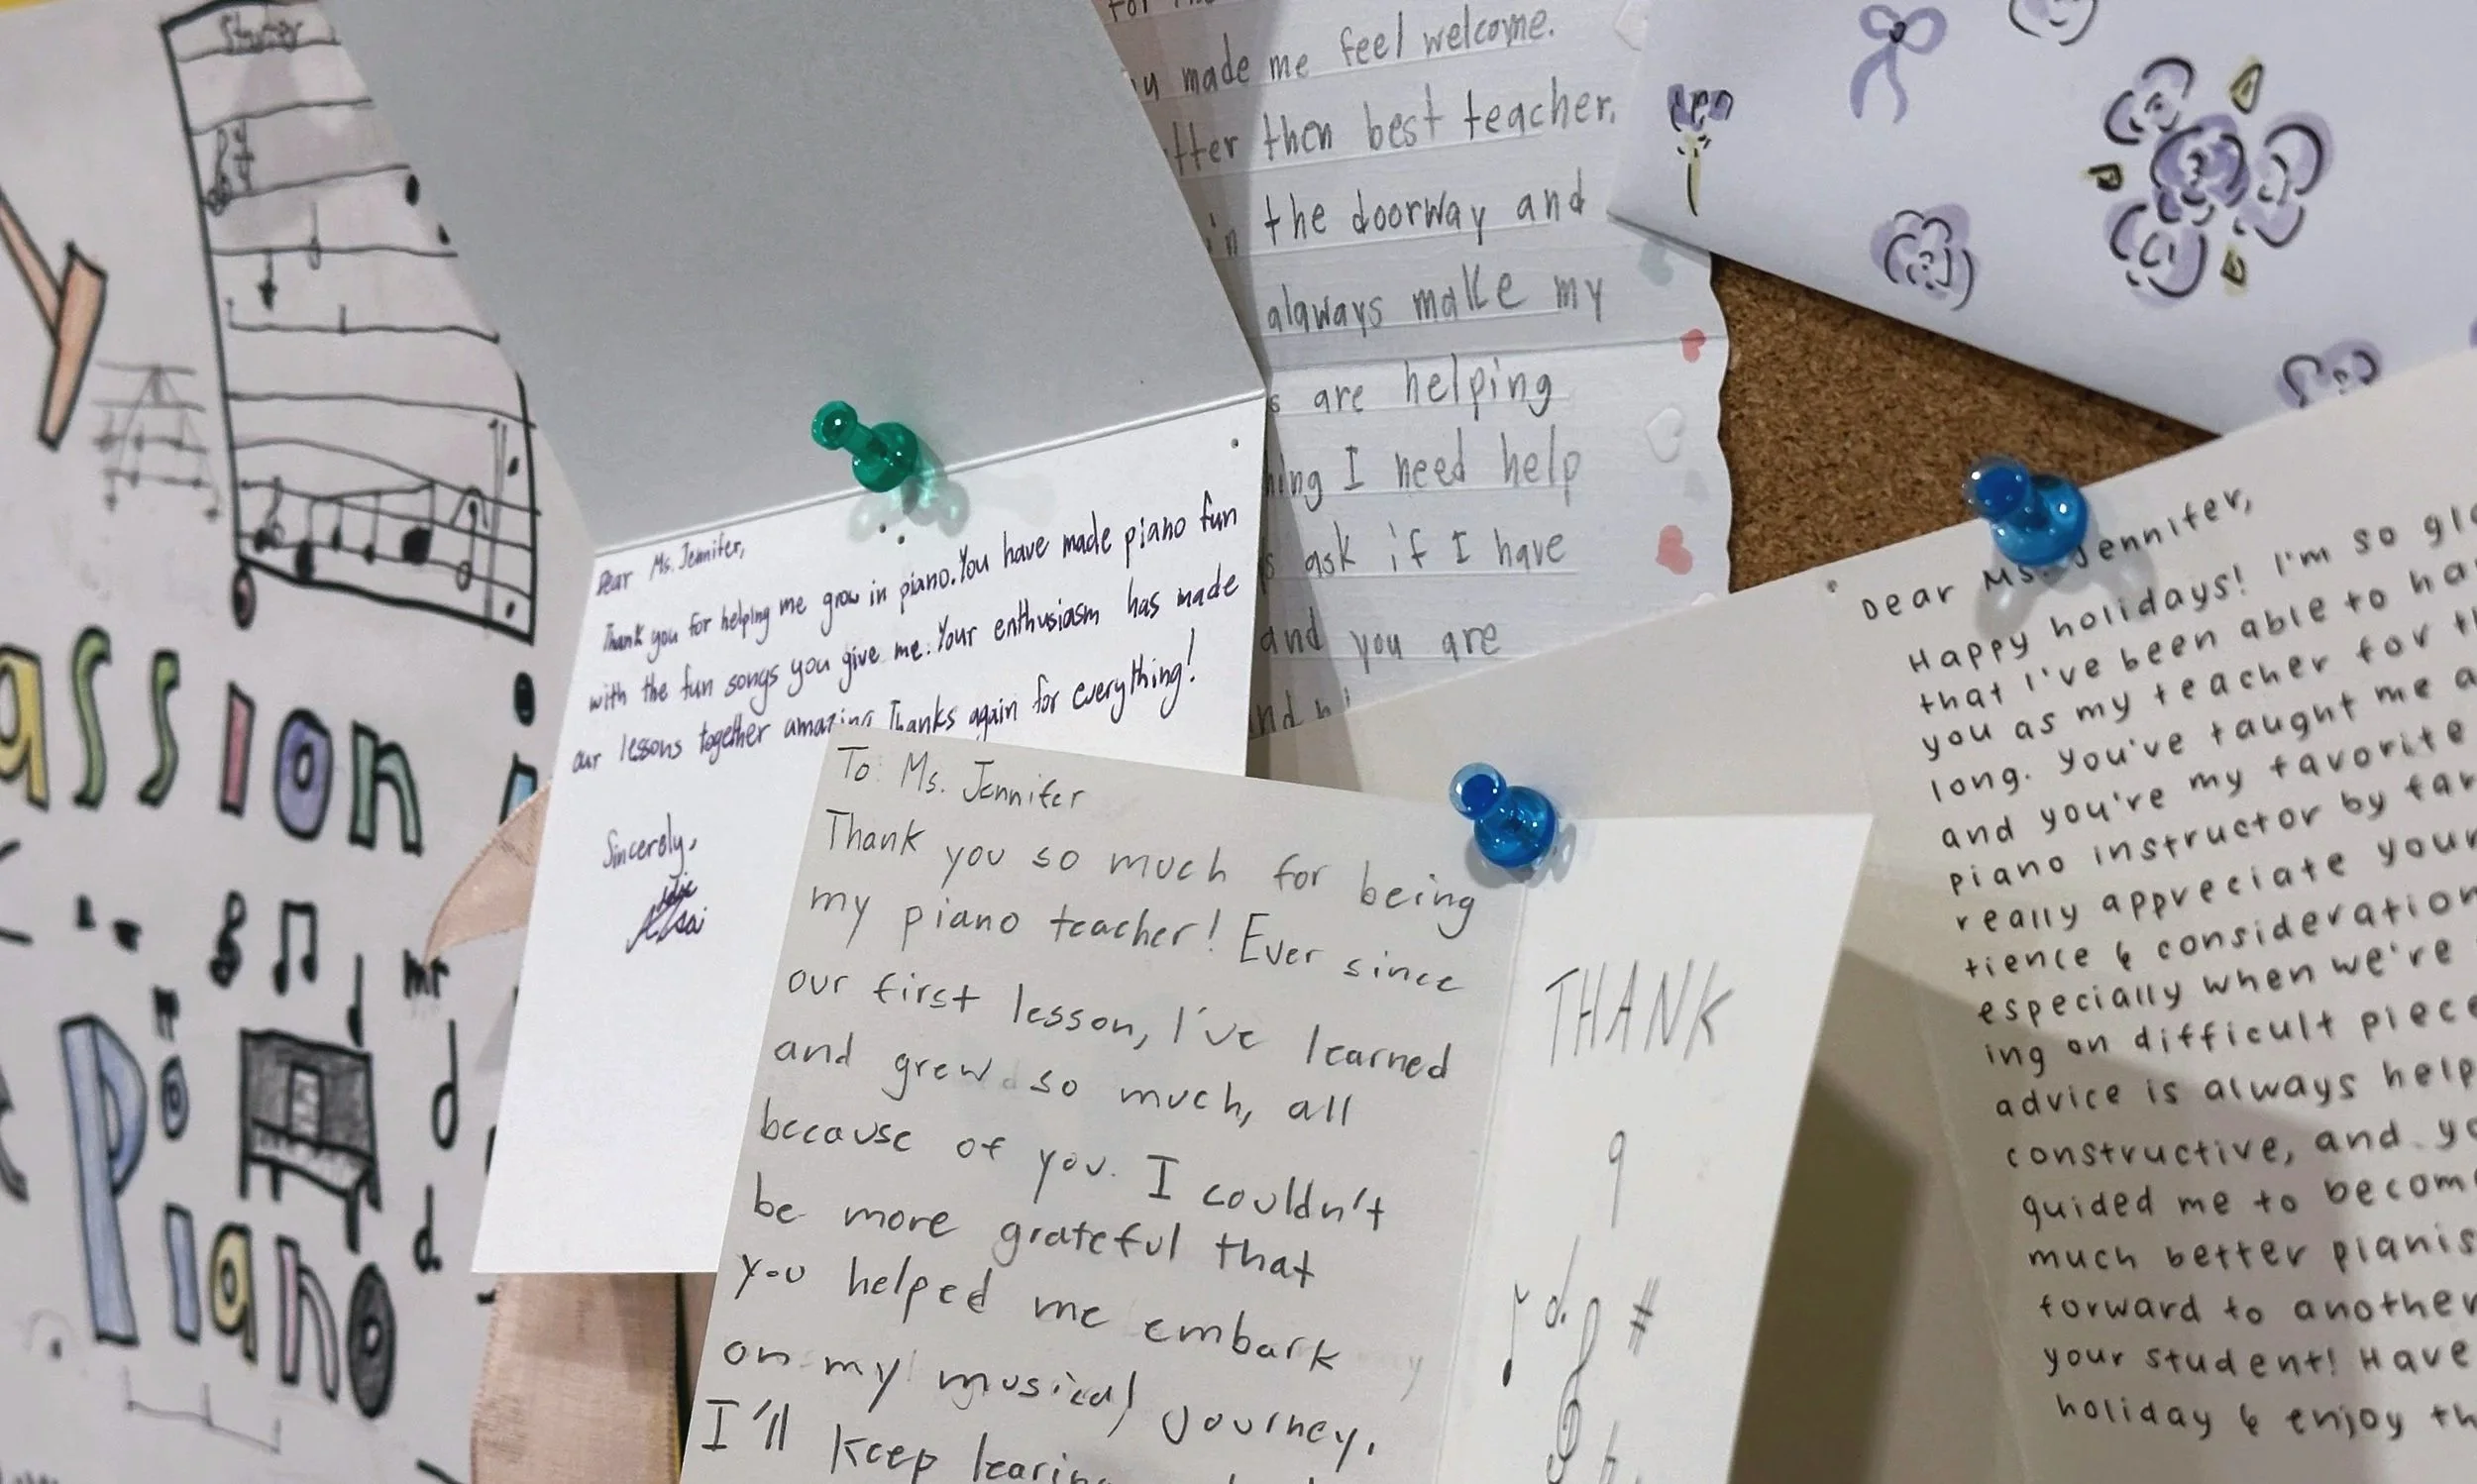 Stumer
assion i
Piano
for
u made me feel welcome.
tter then best teacher.
in the doorway and
alaways make my
s are helping
hing I need help
s ask if I have
and you are
nd
Dear Ms. Jennifer,
Thank you for helping me grow in piano. You have made piano fun
with the fun songs you give me. Your enthusiasm has made
our lessons together amazing Thanks again for everything!
Sincerely,
To: Ms. Jennifer
Thank you so much for being
my piano teacher! Ever since
our first lesson, I've learned
and grew so much, all
because of you. I couldn't
be more grateful that
you helped me embark
on my musical journey.
I'll keep
THANK
Dear Ms. Jennifer,
Happy holidays! I'm so gla
that I've been able to ha
you as my teacher for th
long. You've taught me a
and you're my favorite
piano instructor by far
really appreciate your
tience & consideration
especially when we're
ing on difficult piece
advice is always help
constructive, and yo
guided me to becom
much better pianis
forward to another
your student! Have
holiday & enjoy th